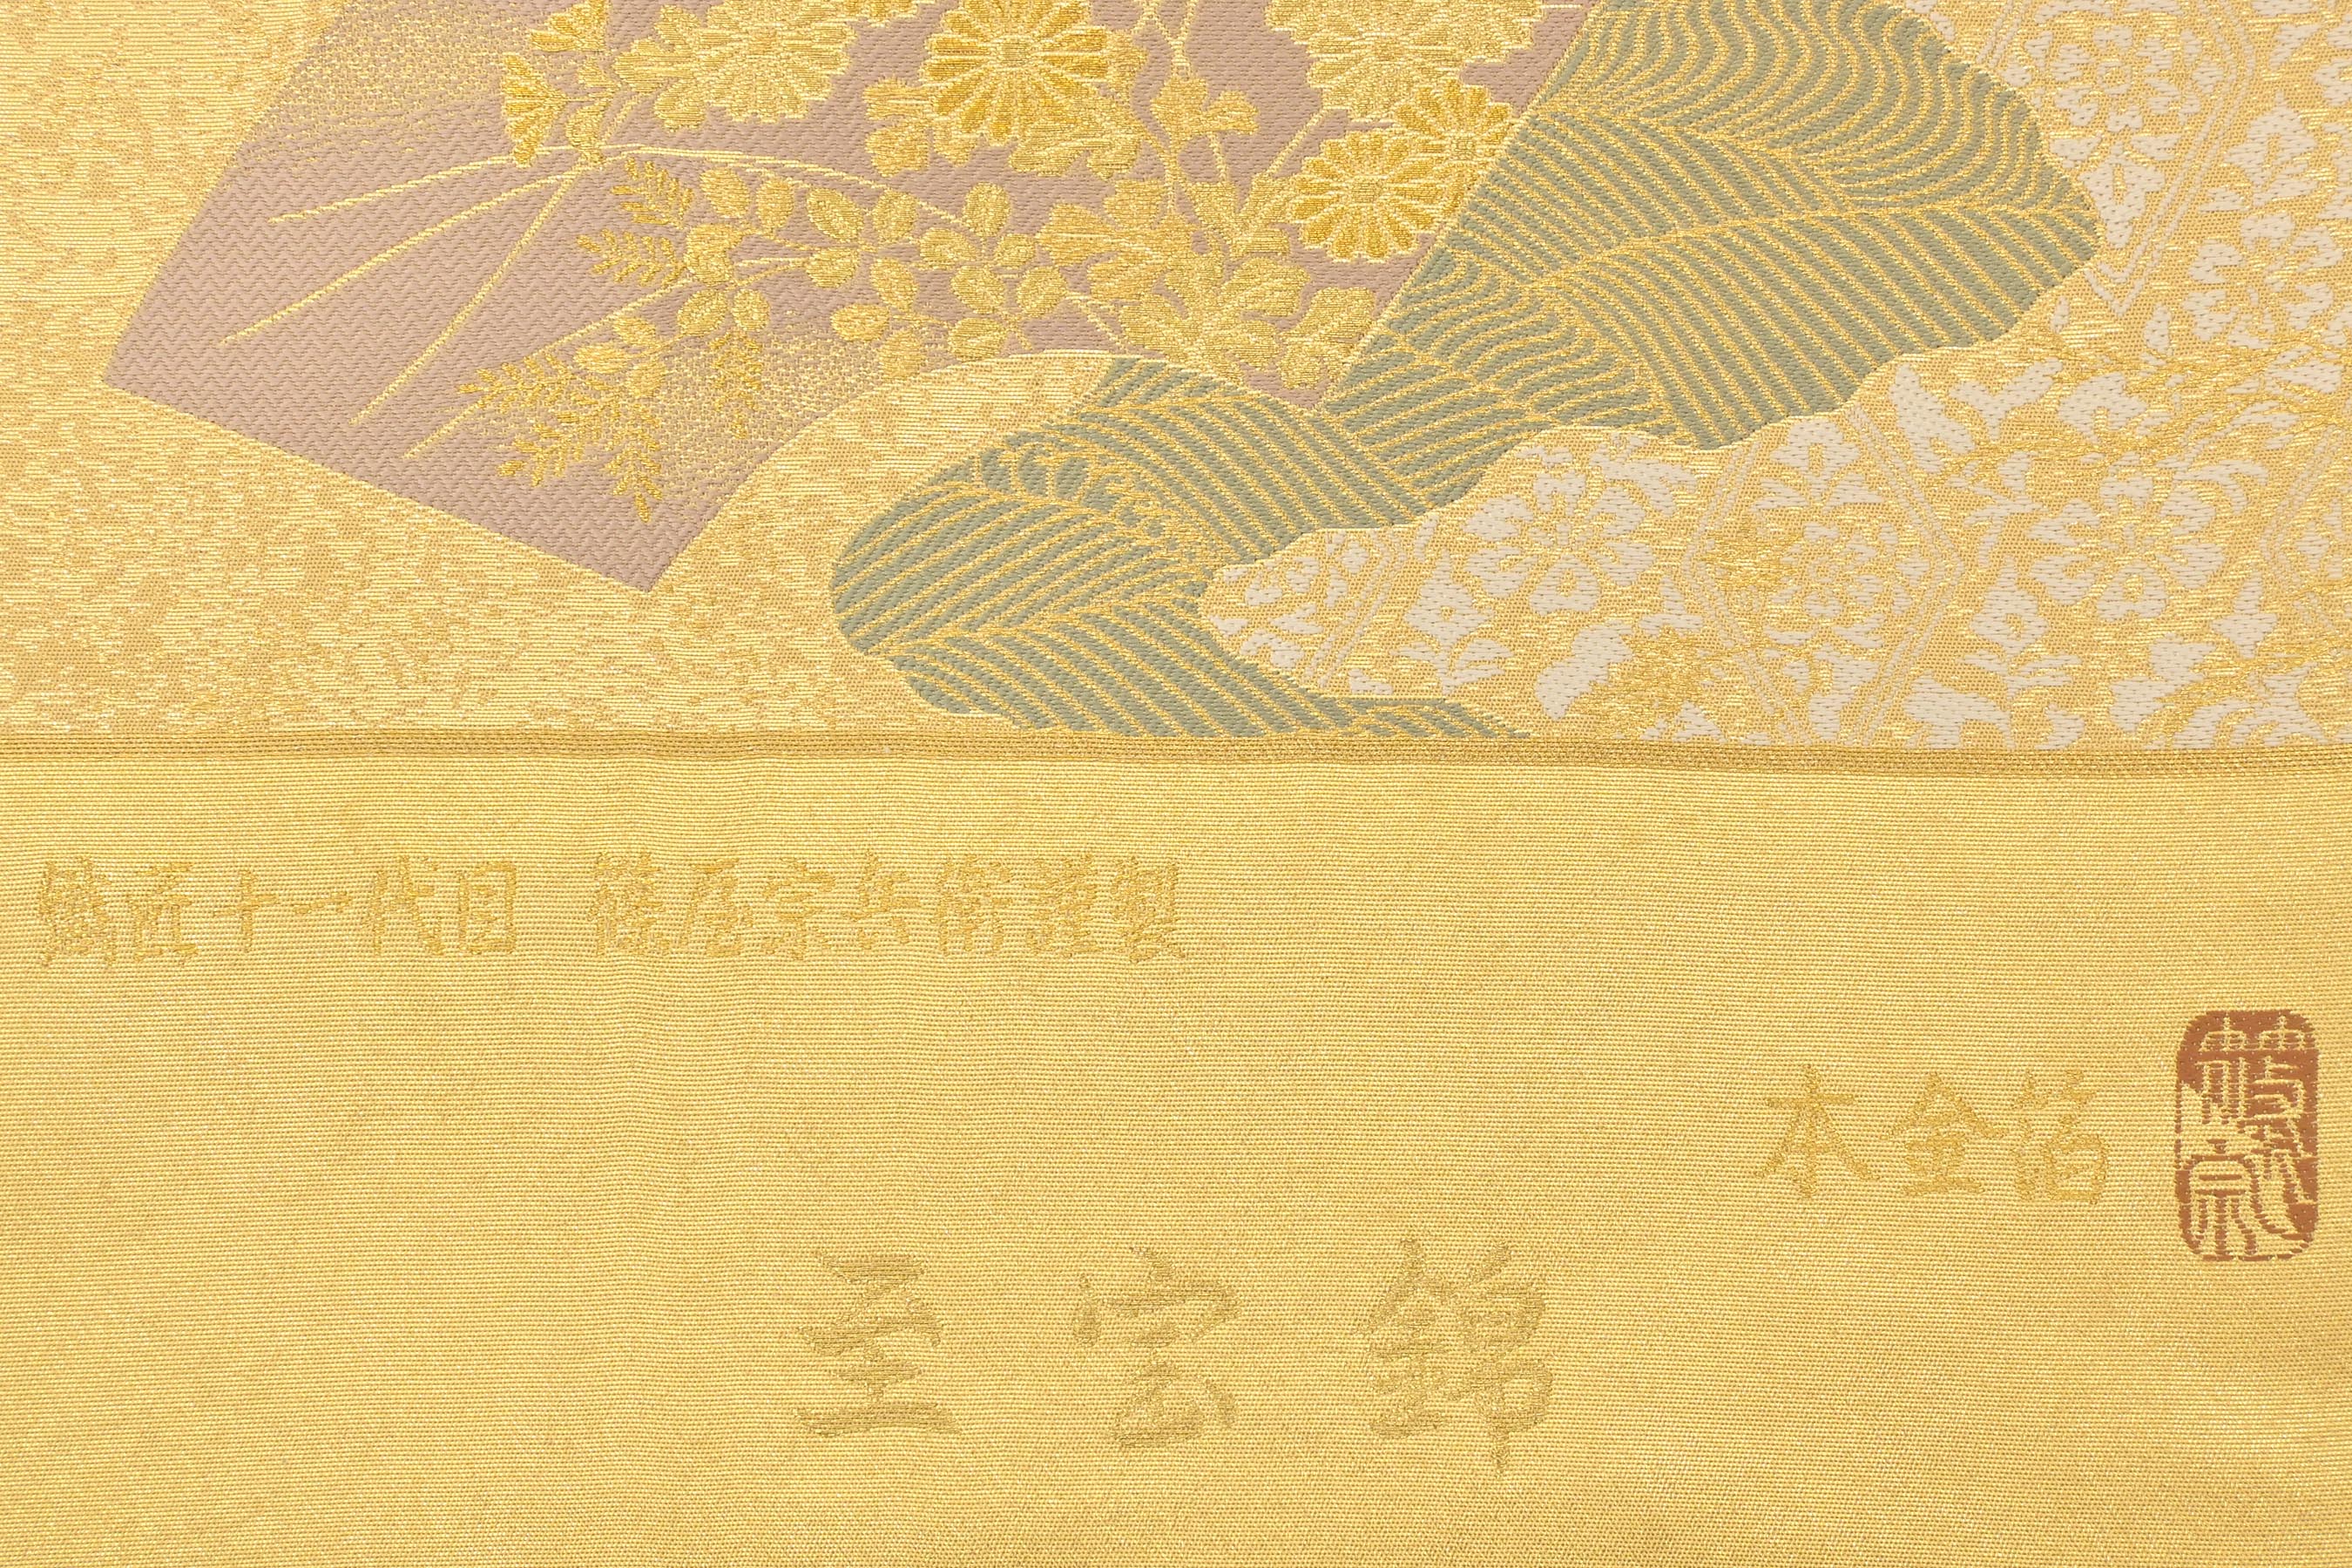 織匠十一代目 藤屋宗兵衛謹製
本金箔
至宝錦